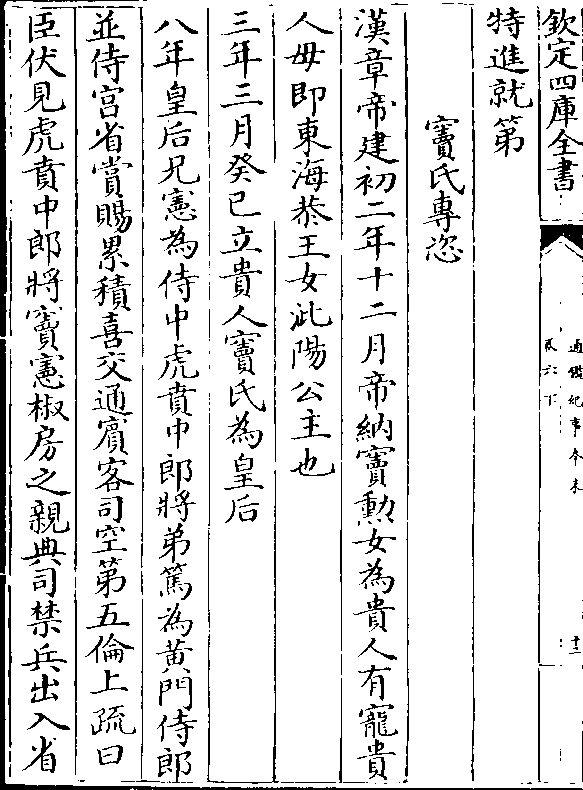 欽定四庫全書
通鑑紀事本末
卷六下
十二
特進就第
竇氏專恣
漢章帝建初二年十二月帝納竇勳女為貴人有寵貴
人母即東海恭王女沘陽公主也
三年三月癸巳立貴人竇氏為皇后
八年皇后兄憲為侍中虎賁中郎將弟篤為黄門侍郎
並侍宫省賞賜累積喜交通賓客司空第五倫上疏曰
臣伏見虎賁中郎將竇憲椒房之親典司禁兵出入省